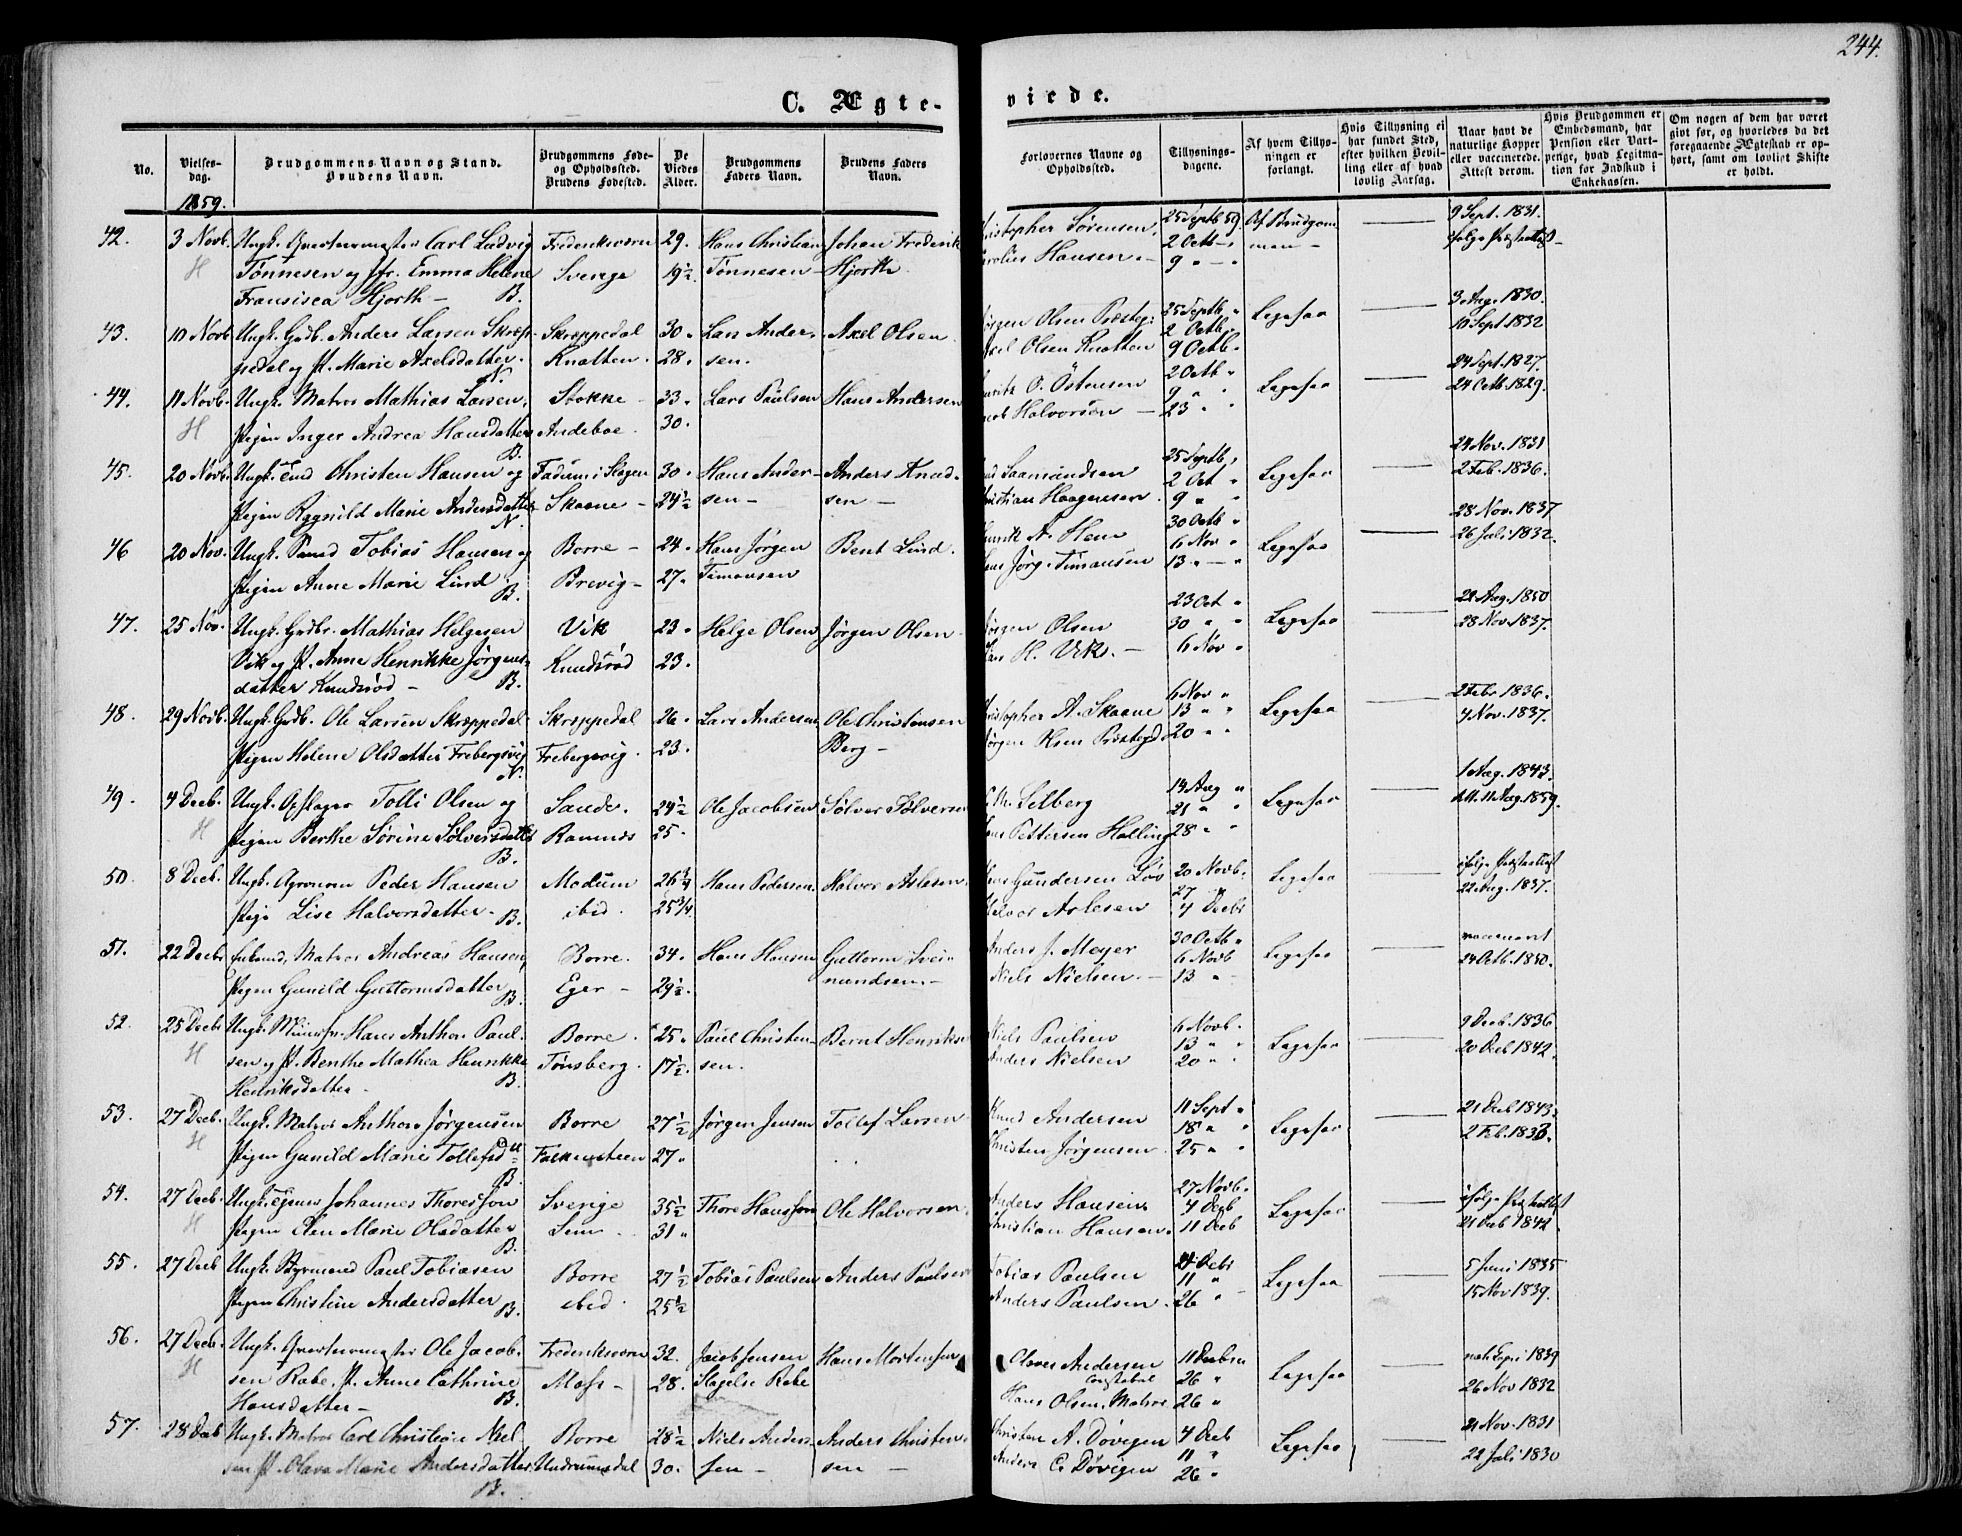 244.
C. Ægte- viede.
No. | Vielses-dag. | Brudgommens Navn og Stand. Brudens Navn. | Brudgommens Føde- og Opholdssted. Brudens Fødested. | De Viedes Alder. | Brudgommens Faders Navn. | Brudens Faders Navn. | Forlovernes Navne og Opholdssted. | Tillysnings-dagene. | Af hvem Tillysningen er forlangt. | Hvis Tillysning ei har fundet Sted, efter hvilken Bevilling eller af hvad lovlig Aarsag. | Naar havt de naturlige Kopper eller vaccinerede. Attest derom. | Hvis Brudgommen er Embedsmand, har Pension eller Vartpenge, hvad Legitimation for Indskud i Enkekassen. | Om nogen af dem har været gift før, og hvorledes da det foregaaende Ægteskab er ophørt, samt om lovligt Skifte er holdt.
1859.
42. 3 Novb. Ungk. Qvartermester Carl Ludvig Frederiksværn 29. Hans Christian Johan Frederik Christopher Sørensen. 25 Septb 59. Af Brudgom 9 Sept. 1831.
H Tønnesen og Jfr. Emma Helene Sverige 19½. Tønnesen Hjorth. Hansen. 2 Octb man ifølge
Fransisca Hjorth B. 9 " 
43. 10 Novb. Ungk. Gdb. Anders Larsen Skræp- Skræppedal 30. Lars Ander- Axel Olsen. Jørgen Olsen Præsteg: 25 Septb " Ligesaa 3 Aug. 1830.
pedal og P. Marie Axelsdatter. Knatten. 28. sen. Axel Olsen Knatten 2 Octb. 10 Sept 1832
N. 9 Octb.
44. 11 Novb. Ungk. Matros Mathias Larsen, Stokke 33. Lars Paulsen Hans Andersen O. Østensen 2 Octb " Ligesaa 24 Sept. 1827.
H Pigen Inger Andrea Hansdatter Andeboe. 30. Halvorsen 9 " 24 Octb. 1829.
B. 23 "
45. 20 Novb. Ungk. Christen Hansen og Fadum i Slagen 30. Hans Ander- Anders Knud- Saamundsen 25 Septb, Ligesaa 24 Nov. 1831
Pigen Ragnild Marie Andersdatter Skaane 24½ sen sen Christian Haagensen. 2 Oct " 2 Feb. 1836.
N. 9 "
46 20 Nov. Ungk. Tobias Hansen og Borre 24. Hans Jørgen Bent Lind. Henrik A. Hem 30 Octb " Ligesaa 28 Nov. 1837
Pigen Anne Marie Lind Brevig 27. Timansen Hans Jørg. Timansen 6 Nov " 26 Juli 1832.
B. 13 "
47. 25 Nov. Ungk. Grdbr. Mathias Helgesen Vik 23. Helge Olsen Jørgen Olsen Jørgen Olsen 23 Oct " Ligesaa 22 Aug. 1850
Vik og P. Anne Henrikke Jørgens- Knudsrød 23. Lars H. Vik. 30 " 28 Nov. 1837.
datter Knudsrød B. 6 Nov "
48. 29 Novb. Ungk. Grdb. Ole Larsen Skræppedal Skræppedal 26. Lars Andersen Ole Christensen Christopher A. Skaane 6 Nov " Ligesaa 2 Febr 1836.
Pigen Helene Olsdatter Frebergsvig Frebergsvig. 23. Berg Jørgen Olsen Præstegd. 13 " 4 Nov. 1837.
N. 20 "
49. 4 Decb. Ungk. Opslager Tolli Olsen og Sande. 24½ Ole Jacobsen Sølver Sølversen Selberg 14 Aug " Ligesaa 1 Aug. 1843.
H Pigen Berthe Sørine Sølversdatter Ramnes 25. Hans Pettersen Halling 21 " 11 Aug. 1859.
B. 28 "
50. 8 Decb. Ungk. Agronom Peder Hansen Modum 26¾ Hans Pedersen. Halvor Aslesen. Gundersen Løv 20 Novb. Ligesaa ifølge Præsteattest
Pige Lise Halvorsdatter. ibid. 25¾ Halvor Aslesen 27 " 22 Aug. 1837.
B. 4 Decb
51. 22 Decbr Enkemd, Matros Andreas Hansen, Borre. 34. Hans Hansen Guttorm Svei- Anders J. Meyer 30 Octb " Ligesaa vaccineret
Pigen Gunild Guttormsdatter Eger 29½. nundsen. Niels Nielsen. 6 Novb 24 Octb. 1850.
B. 13 "
52. 25 Decbr Ungk. Hans Anthon Paul- Borre. 25. Paul Christen- Bernt Henriksen Niels Paulsen 6 Novb. Ligesaa 9 Decb. 1836
H sen og P. Benthe Mathea Henrikke Tønsberg. 17½. sen. Anders Nielsen 13 " 20 Decb 1842.
Henriksdatter B. 20 "
53. 27 Decb. Ungk. Matros Anthon Jørgensen Borre 27½ Jørgen Jensen Tollef Larsen Knud Andersen 11 Sept " Ligesaa 21 Decb 1843.
H Pigen Gunild Marie Tollefsdtr Falkensteen 27. Christen Jørgensen. 18 " 2 Feb. 1833.
B. 25 "
54. 27 Decb. Ungk. Johannes Thoresson Sverige 35½ Thore Hansson Ole Halvorsen. Anders Hansen 27 Novb. Ligesaa ifølge
H Pigen Elen Marie Olsdatter Sem. 31 " Christian Hansen. 4 Decb 21 Decb 1842.
B. 11 Decb
55. 27 Decb Ungk. Styrmand Paul Tobiasen Borre 27½ Tobias Paulsen Anders Paulsen Tobias Paulsen 4 Decbr Ligesaa 5 Juni 1835
Pigen Christine Andersdatter ibid. 25½ Anders Paulsen. 11 " 15 Nov 1839.
B. 26 "
56. 27 Decb. Ungk. Qvartermester Ole Jacob- Frederiksværn 32. Jacob Jensen Hans Mortensen Claves Andersen 11 Decbr Ligesaa 1839
H sen Rabe, P. Anne Cathrine Moss 28. Slagelse Rabe Constabel 26 " 26 Nov 1832
Hansdatter B. Hans Olsen, Matros 26 "
57. 28 Decb Ungk. Matros Carl Christian Niel- Borre 28½ Niels Anders- Anders Christen- Christen A. Døvigen 4 Decb Ligesaa 21 Nov. 1831
sen P. Olava Marie Andersdatter. Undrumsdal 30. sen sen Anders C. Døvigen 11 " 22 Juli 1830
B. 26 "